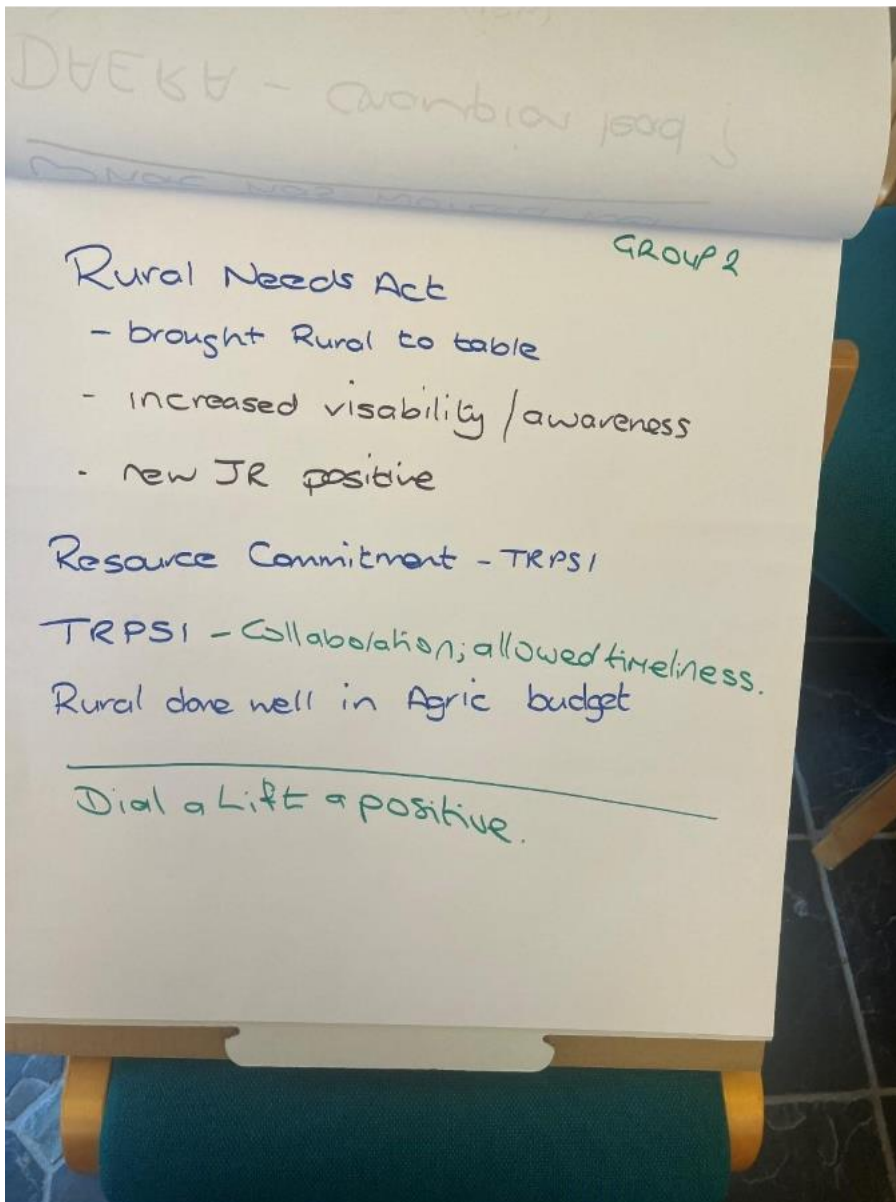 GROUP 2
Rural Needs Act
- brought Rural to table
- increased visability / awareness
- new JR positive
Resource Commitment - TRPSI
TRPSI - Collaboration; allowed timeliness.
Rural done well in Agric budget
Dial a Lift a positive.